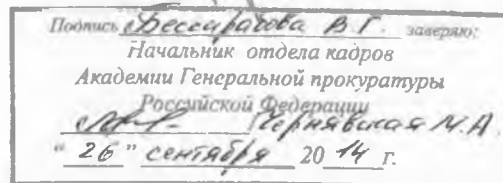 Подпись Бессарабова В. Г. заверяю:
Начальник отдела кадров
Академии Генеральной прокуратуры
Российской Федерации
Чернявская Н.А.
" 26 " сентября 20 14 г.